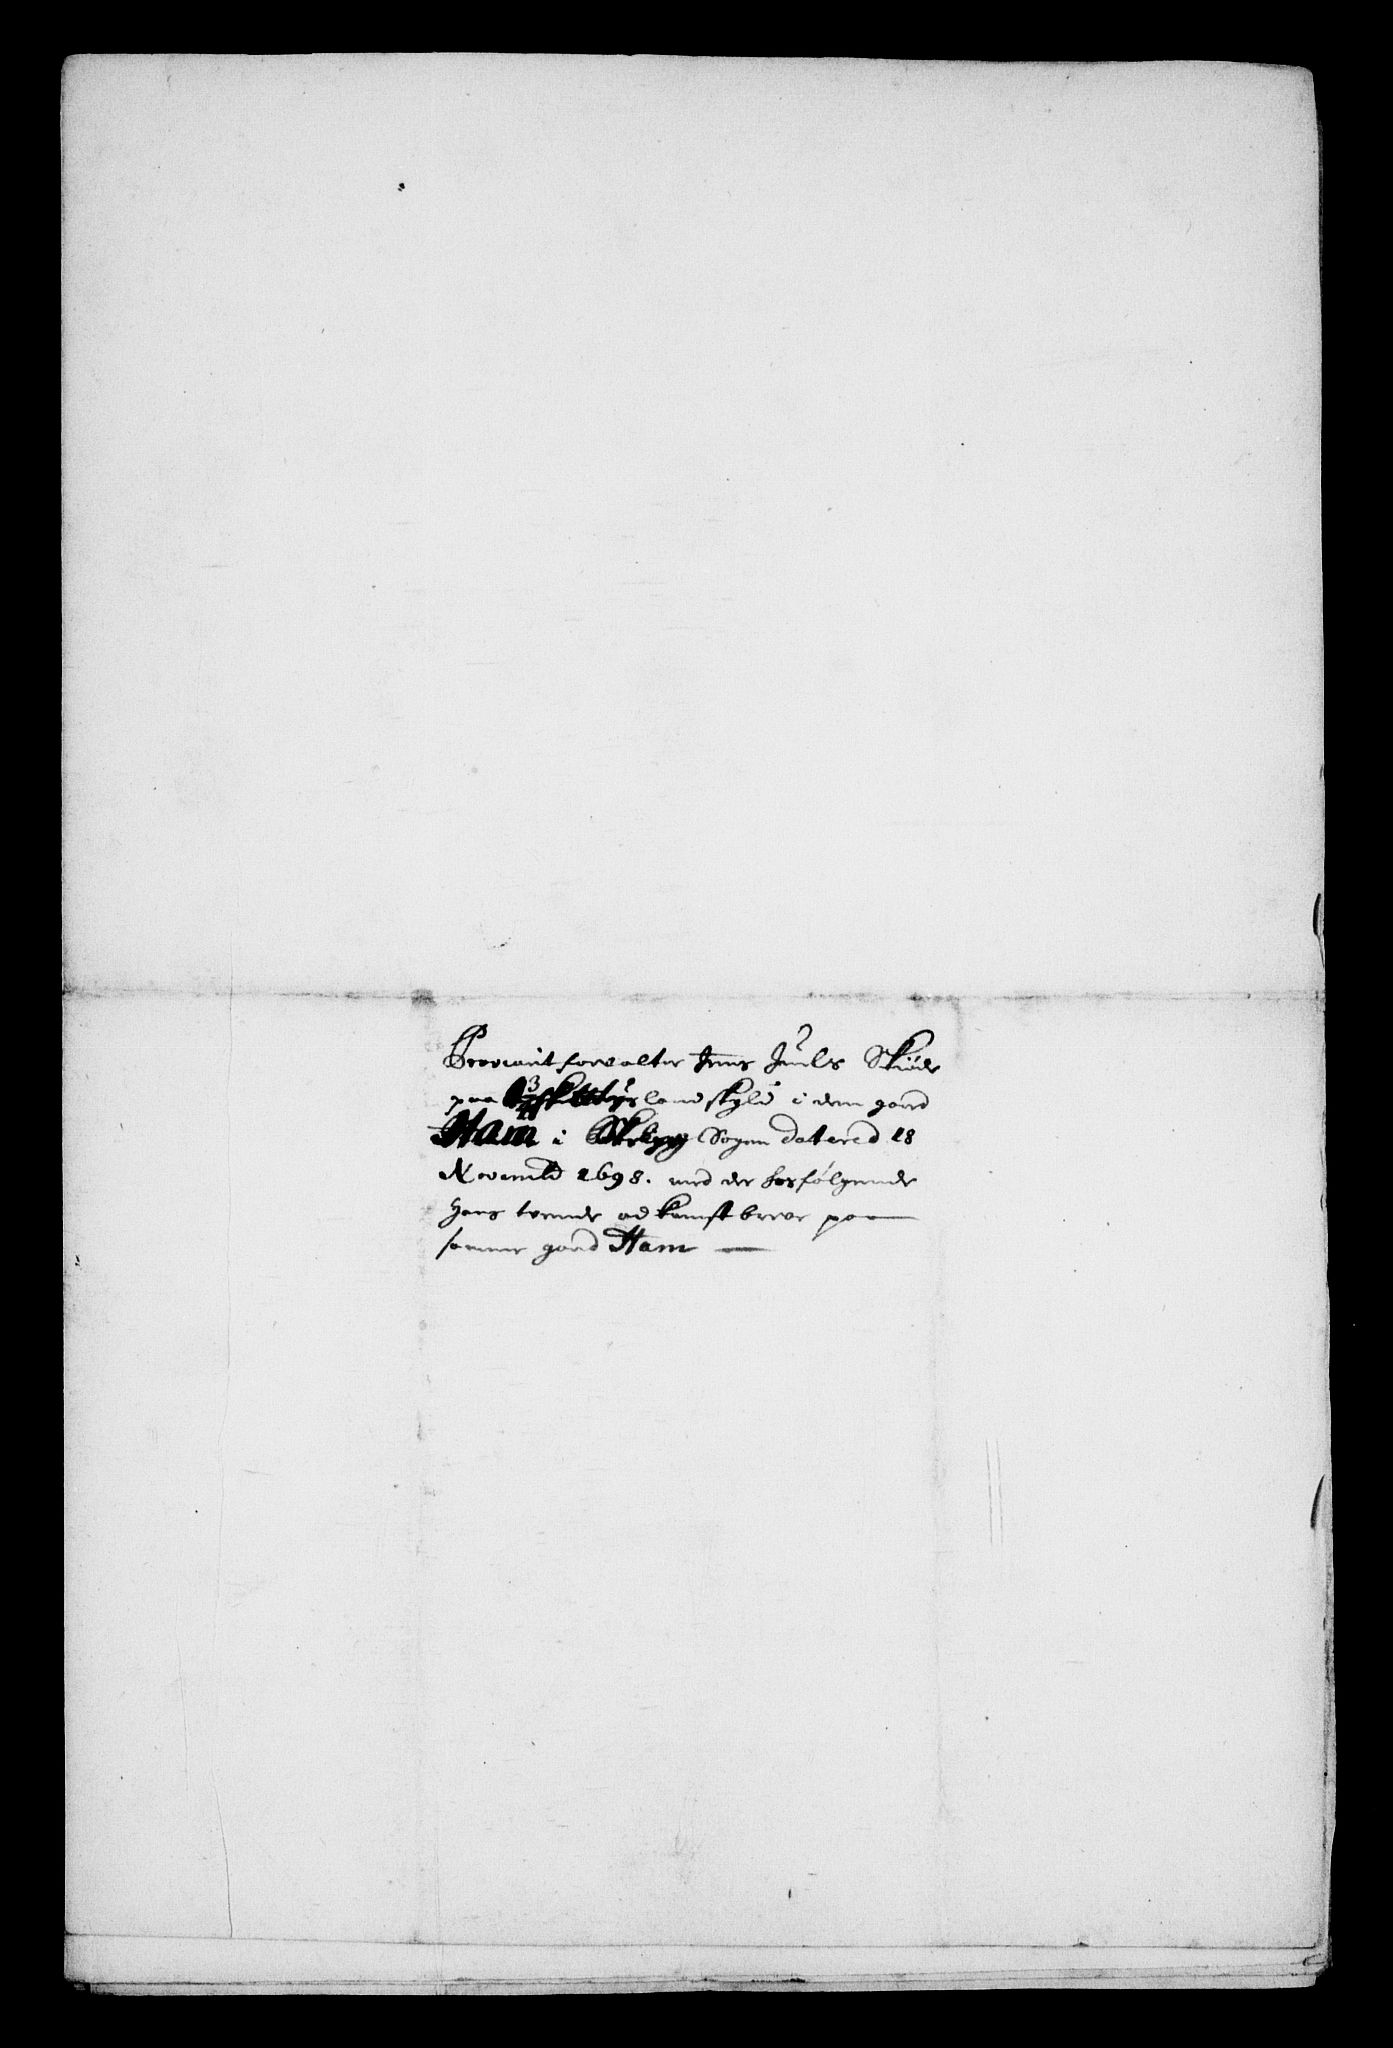 Proviant forvalter Jens Juels Skiøde
paa landskyld i dem gaard
Ham i Sogen datered 18
Novembr 1698. med der hosfølgende
hans tvende adkomst brever paa
samme gaard Ham